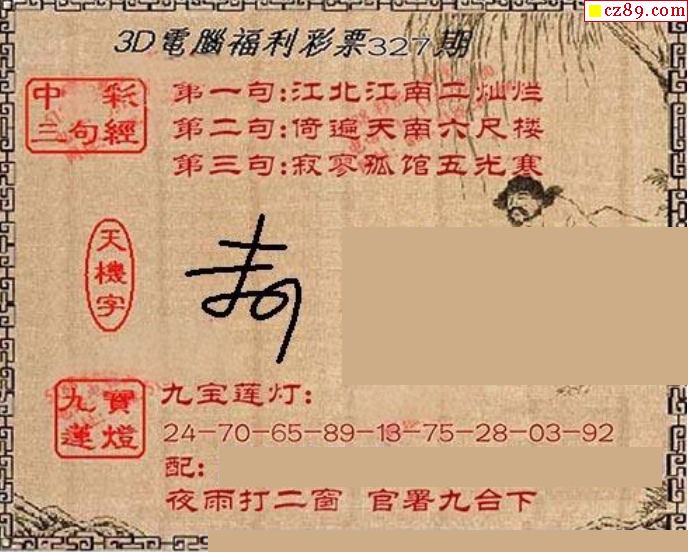 cz89.com
3D電腦福利彩票327期
中彩
三句經
第一句:江北江南二灿烂
第二句:倚遍天南六尺楼
第三句:寂寥孤馆五光寒
天機字
九寶
蓮燈
九宝莲灯:
24-70-65-89-13-75-28-03-92
配:
夜雨打二窗 官署九台下